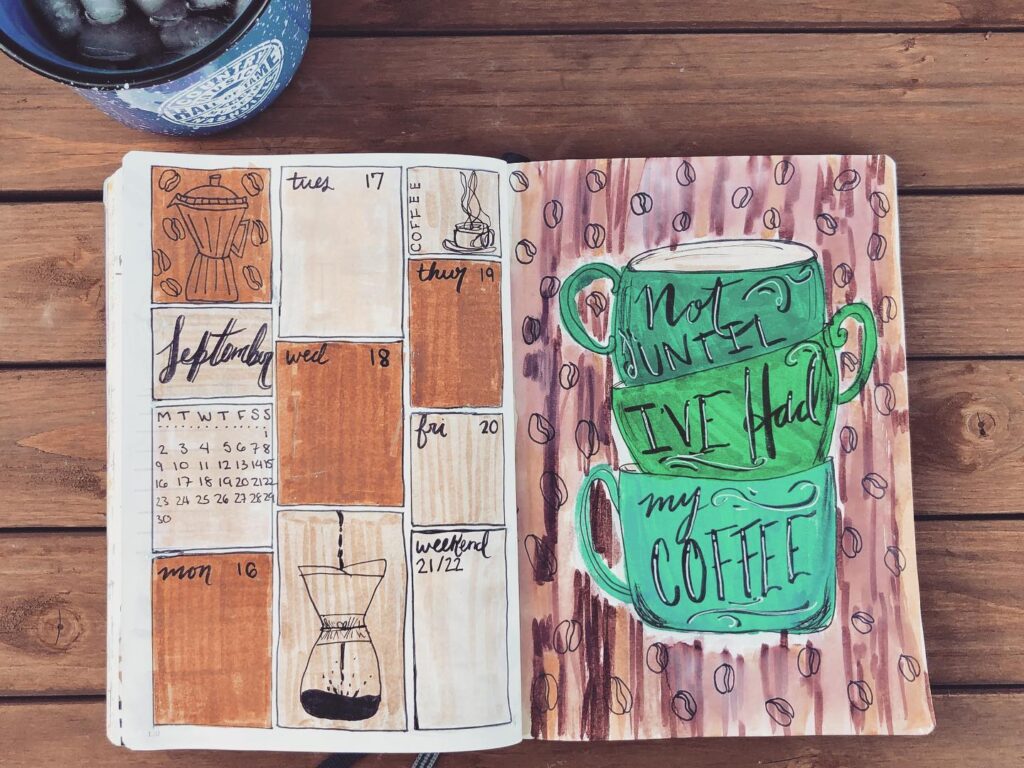 COUNTRY
MUSIC
HALL OF FAME
NASHVILLE
September
M T W T F S S
1
2 3 4 5 6 7 8
9 10 11 12 13 14 15
16 17 18 19 20 21 22
23 24 25 26 27 28 29
30
mon 16
tues 17
wed 18
COFFEE
thur 19
fri 20
weekend
21/22
Not
UNTIL
IVE Had
my
COFFEE